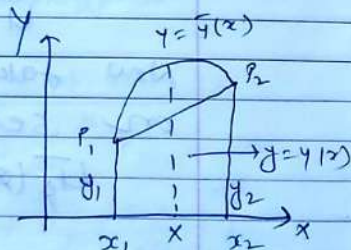 Y
y = ȳ(x)
P₂
P₁
y = y(x)
y₁
y₂
x₁
x
x₂
x